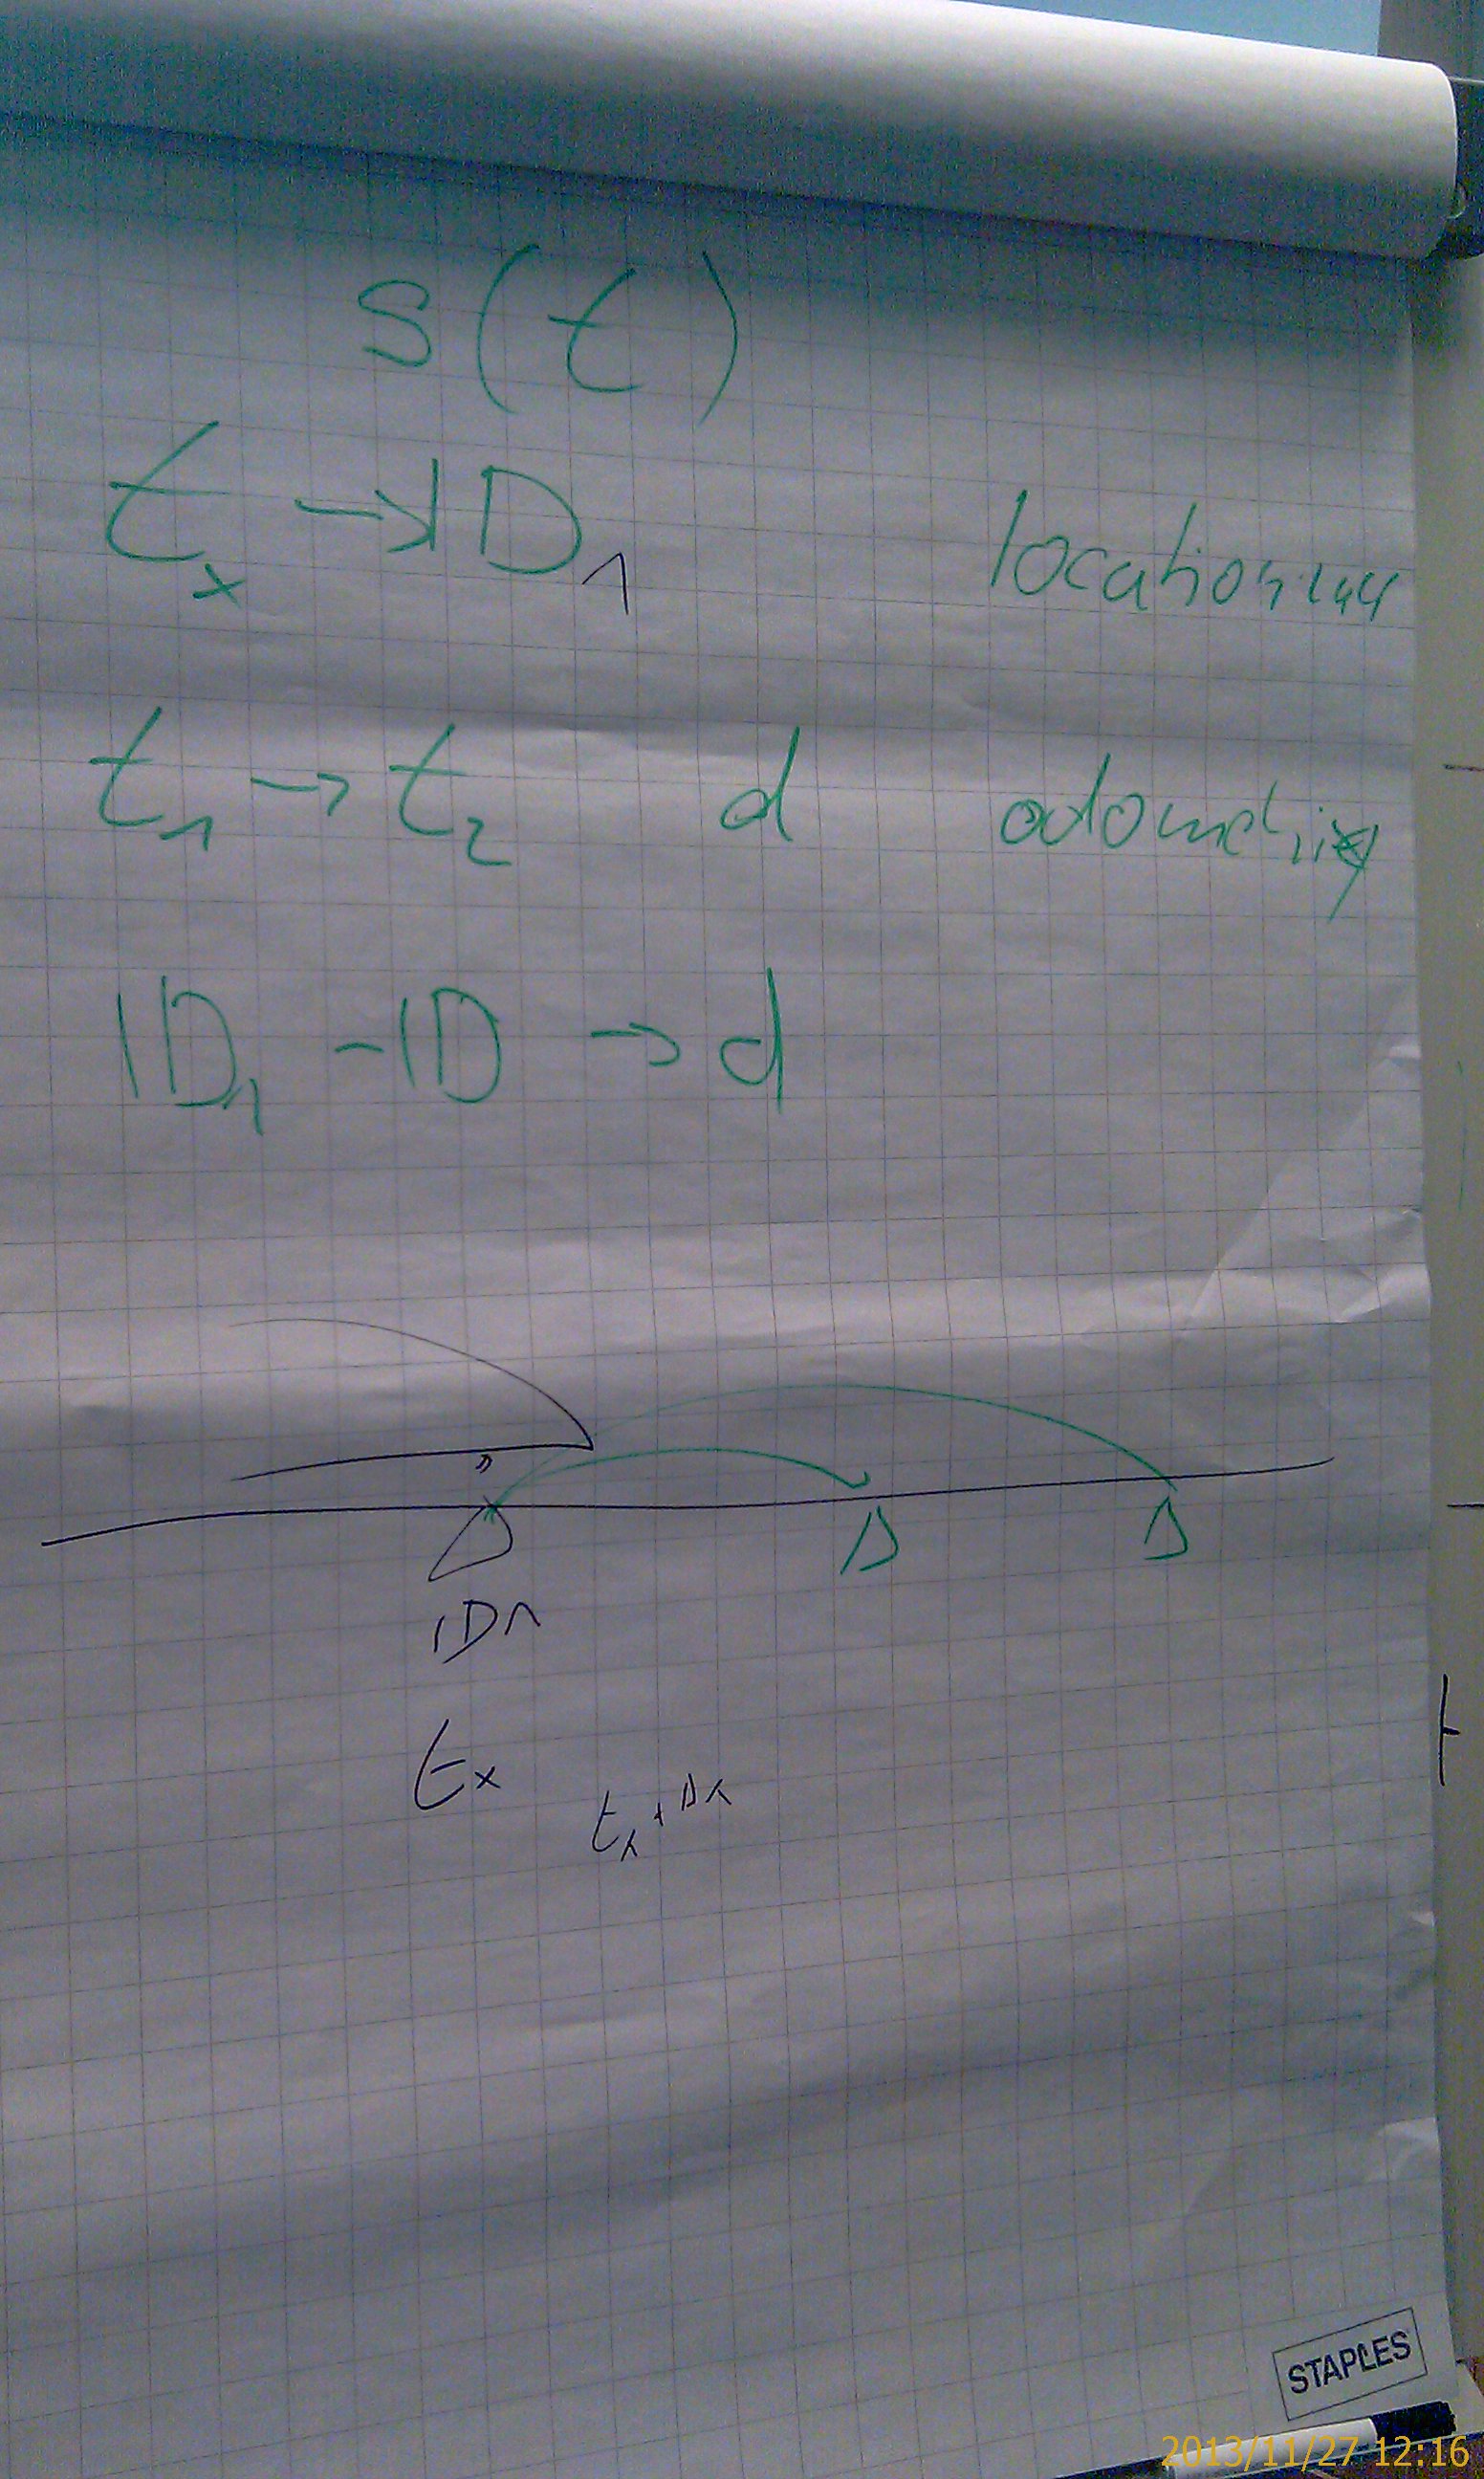 s(t)
t_x → ID_1
t_1 → t_2 d odometry
ID_1 - ID → d
ID1
t_x
t_x + Δx
STAPLES
2013/11/27 12:16